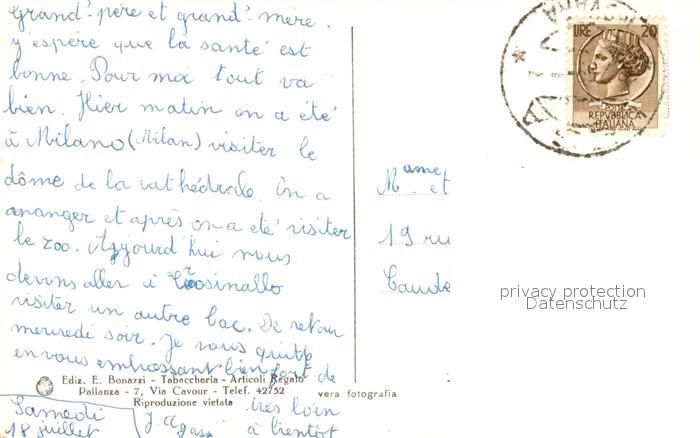 Grand'-père et grand'-mère.
y'espère que la santé est
bonne. Pour moi tout va
bien. Hier matin on a été
à Milano (Milan) visiter le
dôme de la cathédrale. On a
ananger et après on a été visiter
le zoo. Aujourd'hui nous
devons aller à
visiter un autre lac. De retour
mercredi soir. Je vous quitte
en vous embrassant bien fort de
très loin
à bientôt
Samedi
18 juillet
Ediz. E. Bonazzi - Tabaccheria - Articoli Regalo
Pallanza - 7, Via Cavour - Telef. 42752
Riproduzione vietata
vera fotografia
LIRE 20
POSTE
REPVBBLICA
ITALIANA
Mame et
19 ru
Caude
privacy protection
Datenschutz